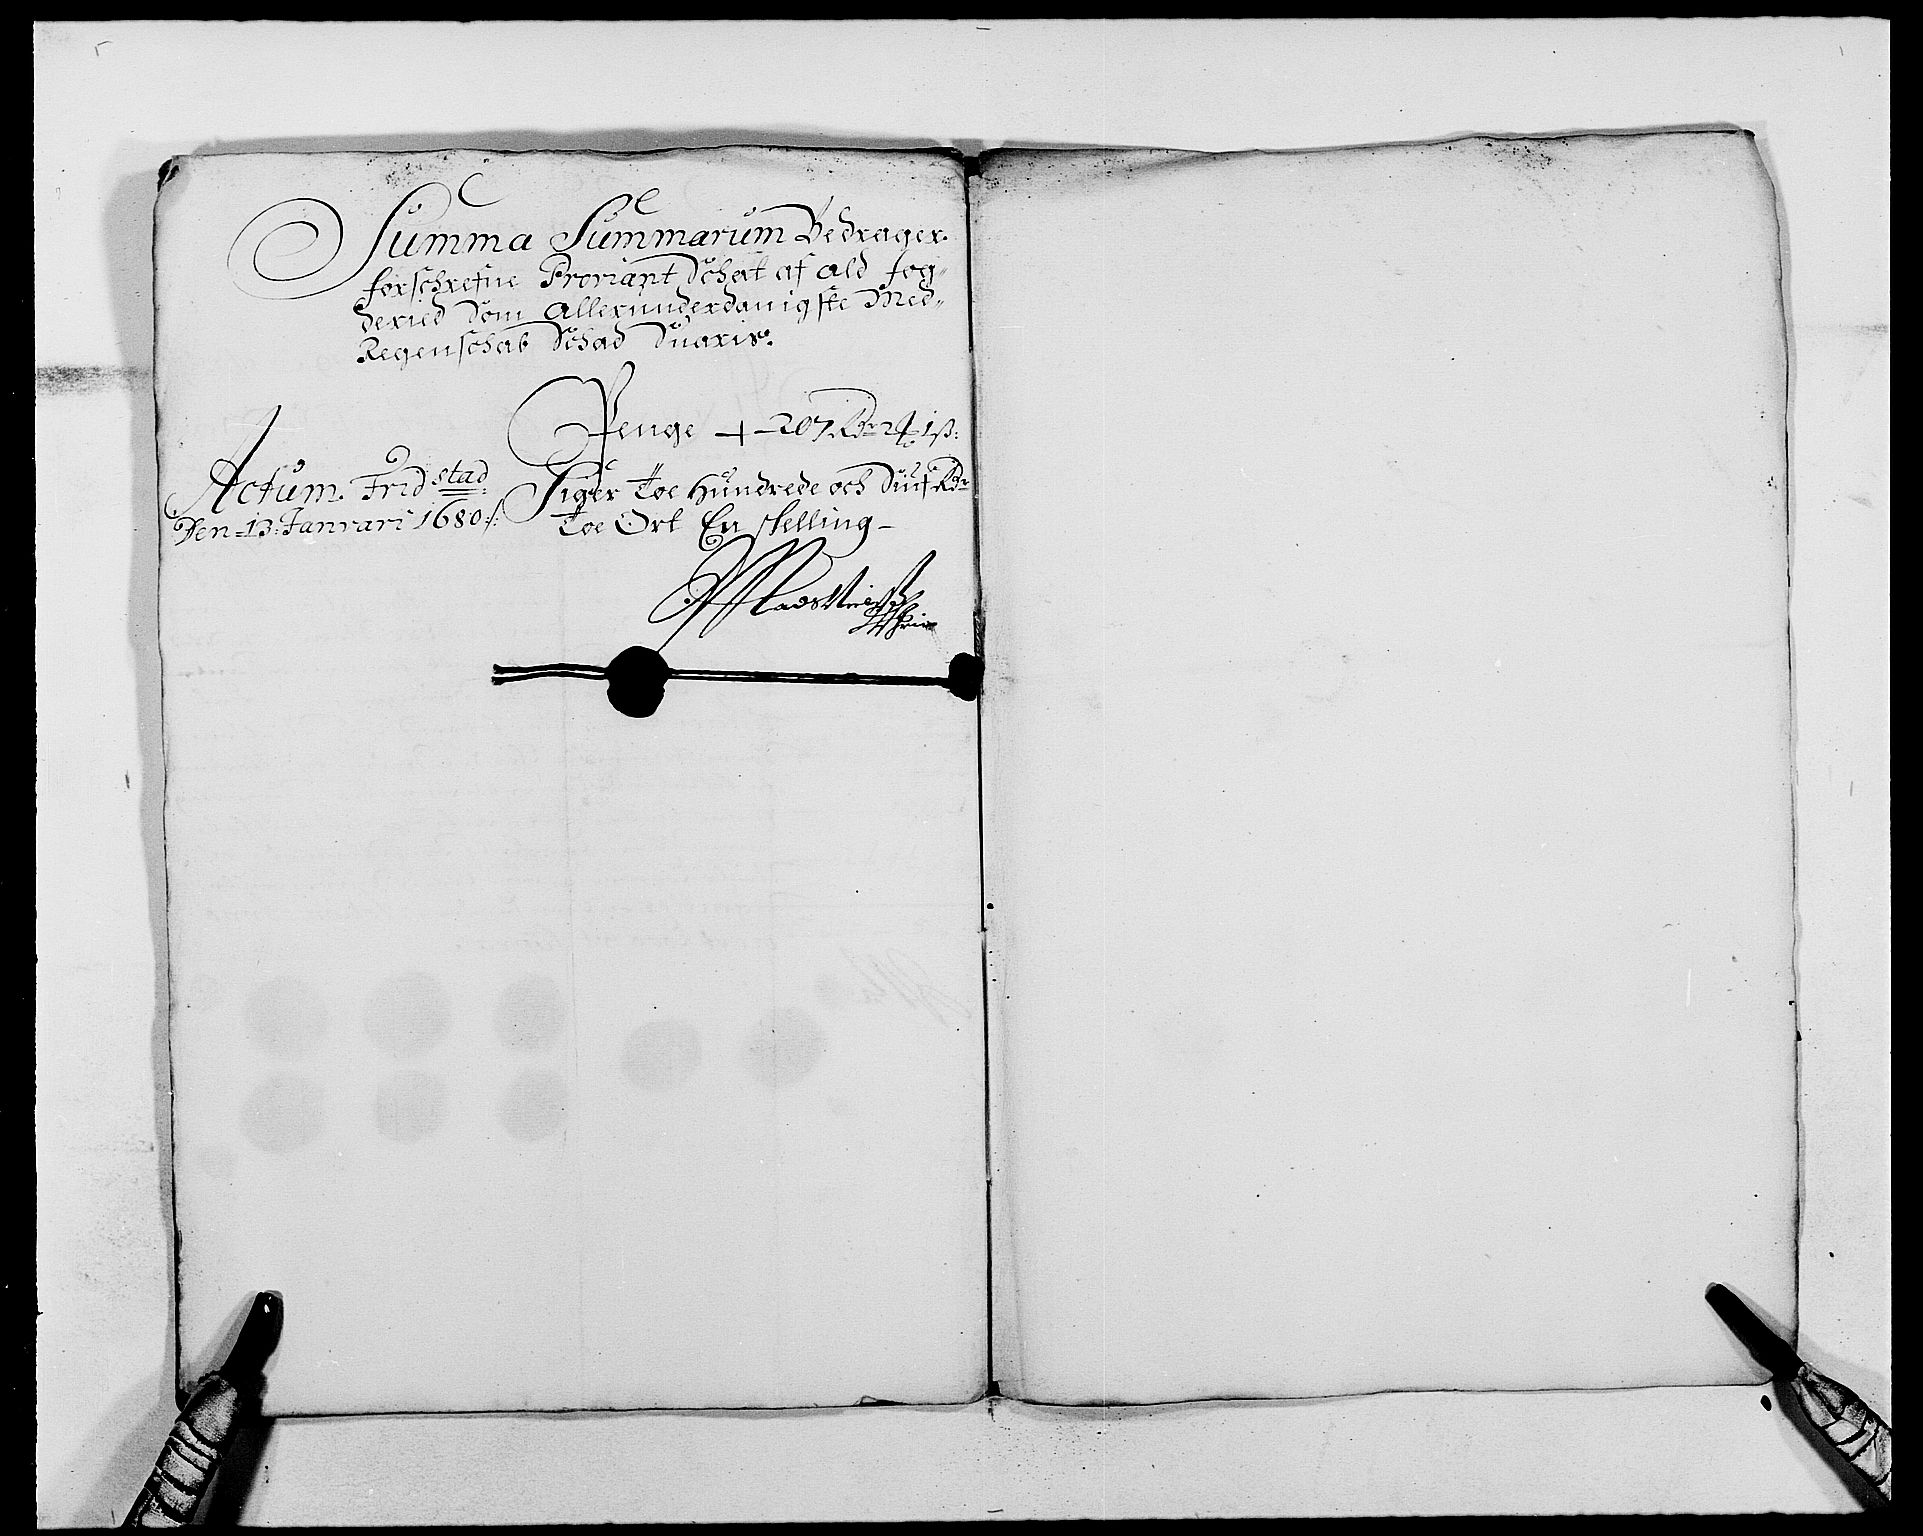 Summa Summarum Bedrager
forschrefne Proviant Schat af ald fog„
deried Som Allerunderdanigste Med„
Regenschab Schad Suaris.
Penge — 207 Rdr 2 1 ß:
Actum. Fridstad
Den 13: Januari 1680:/:
Siger Toe Hundrede och Siuf Rdr
Toe Ort En skelling –
Mads